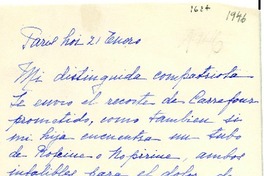 1624
1946
Paris hoi 21 Enero
Mi distinguida compatriota
Le envio el recorte de Carrefour
prometido, como tambien si
mi hija encuentra un tubo
de o Nopirine, ambos
infalibles para el dolor de